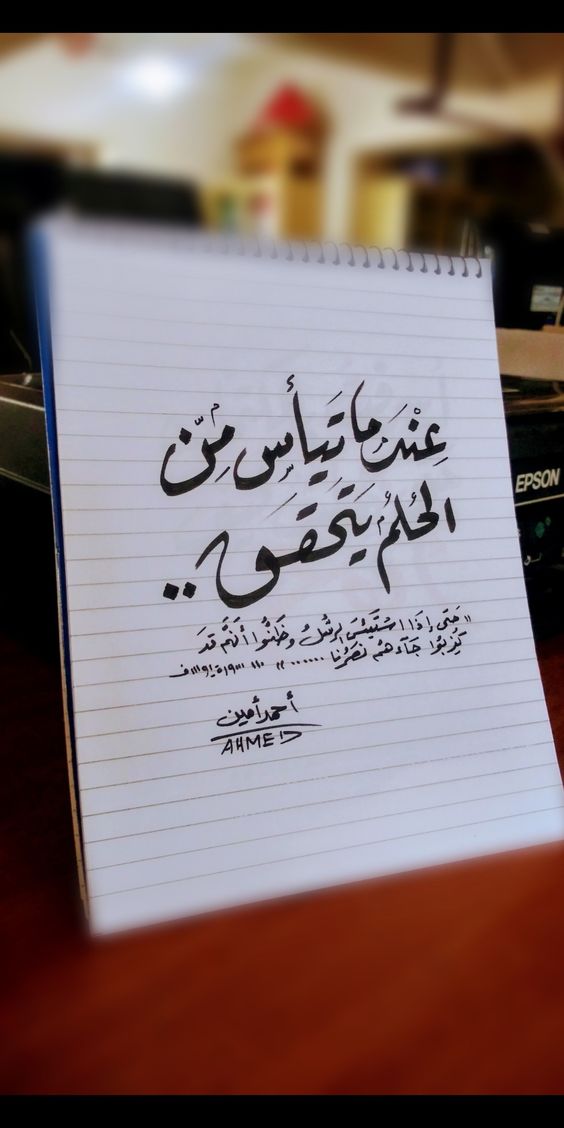 عِنْدَمَا تَيأسِ مِّن
الحُلمُ يَتَحَقق..
"حَتى إِذَا اسْتَيْئَسَ الرسُلُ وظَنُّوا أَنَّهُم قَد
كُذِبُوا جَآءَهُم نَصْرُنا ...... "
أحمد أمين
AHMED
EPSON